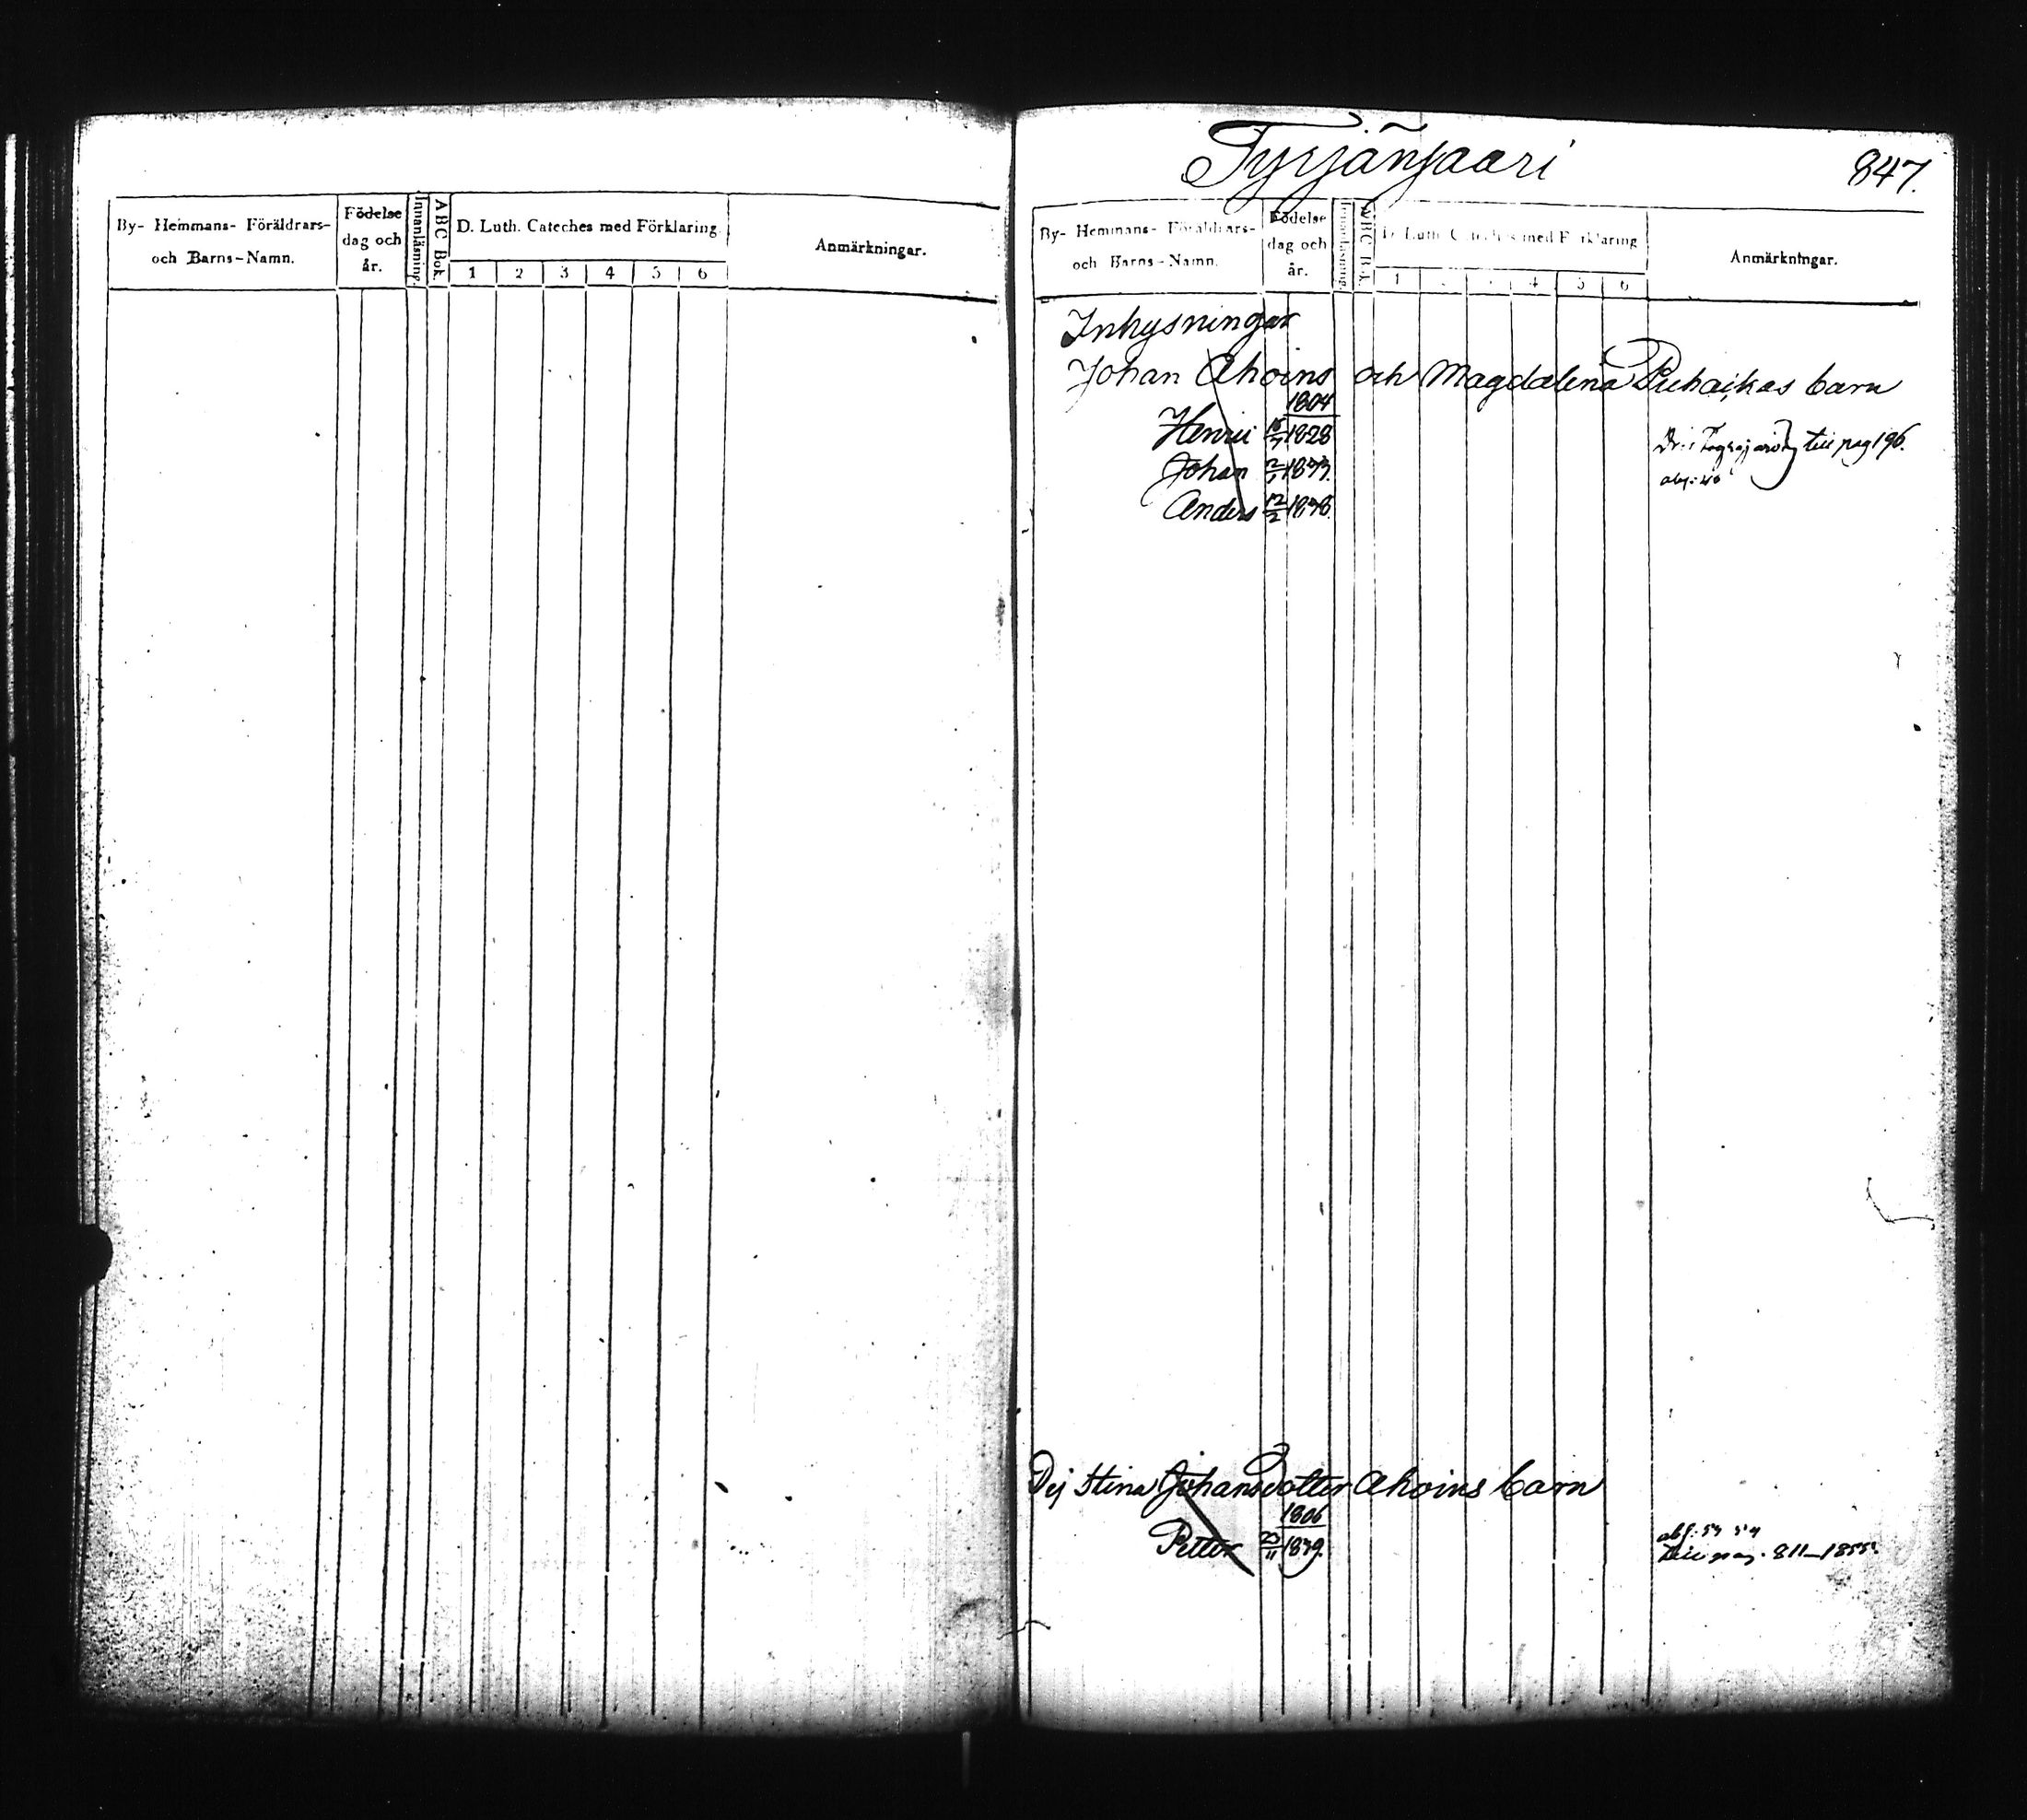 By- Hemmans- Föräldrars-
och Barns-Namn.
Födelse
dag och
år.
Innanläsning.
ABC Bok.
D. Luth. Cateches med Förklaring.
1 2 3 4 5 6
Anmärkningar.
Tyrjänsaari
847.
By- Hemmans- Föräldrars-
och Barns-Namn.
Födelse
dag och
år.
Innanläsning.
ABC Bok.
D. Luth. Cateches med Förklaring
1 2 3 4 5 6
Anmärkningar.
Inhysningar
Johan Ahoins och Magdalena Puhaikas barn
1804
Henric 1828 till pag 196.
Johan
Anders 12/2
Dej Stina Johansdotter Ahoins barn
1806
Petter 1839. abs: 53 54
pag. 811–1855.